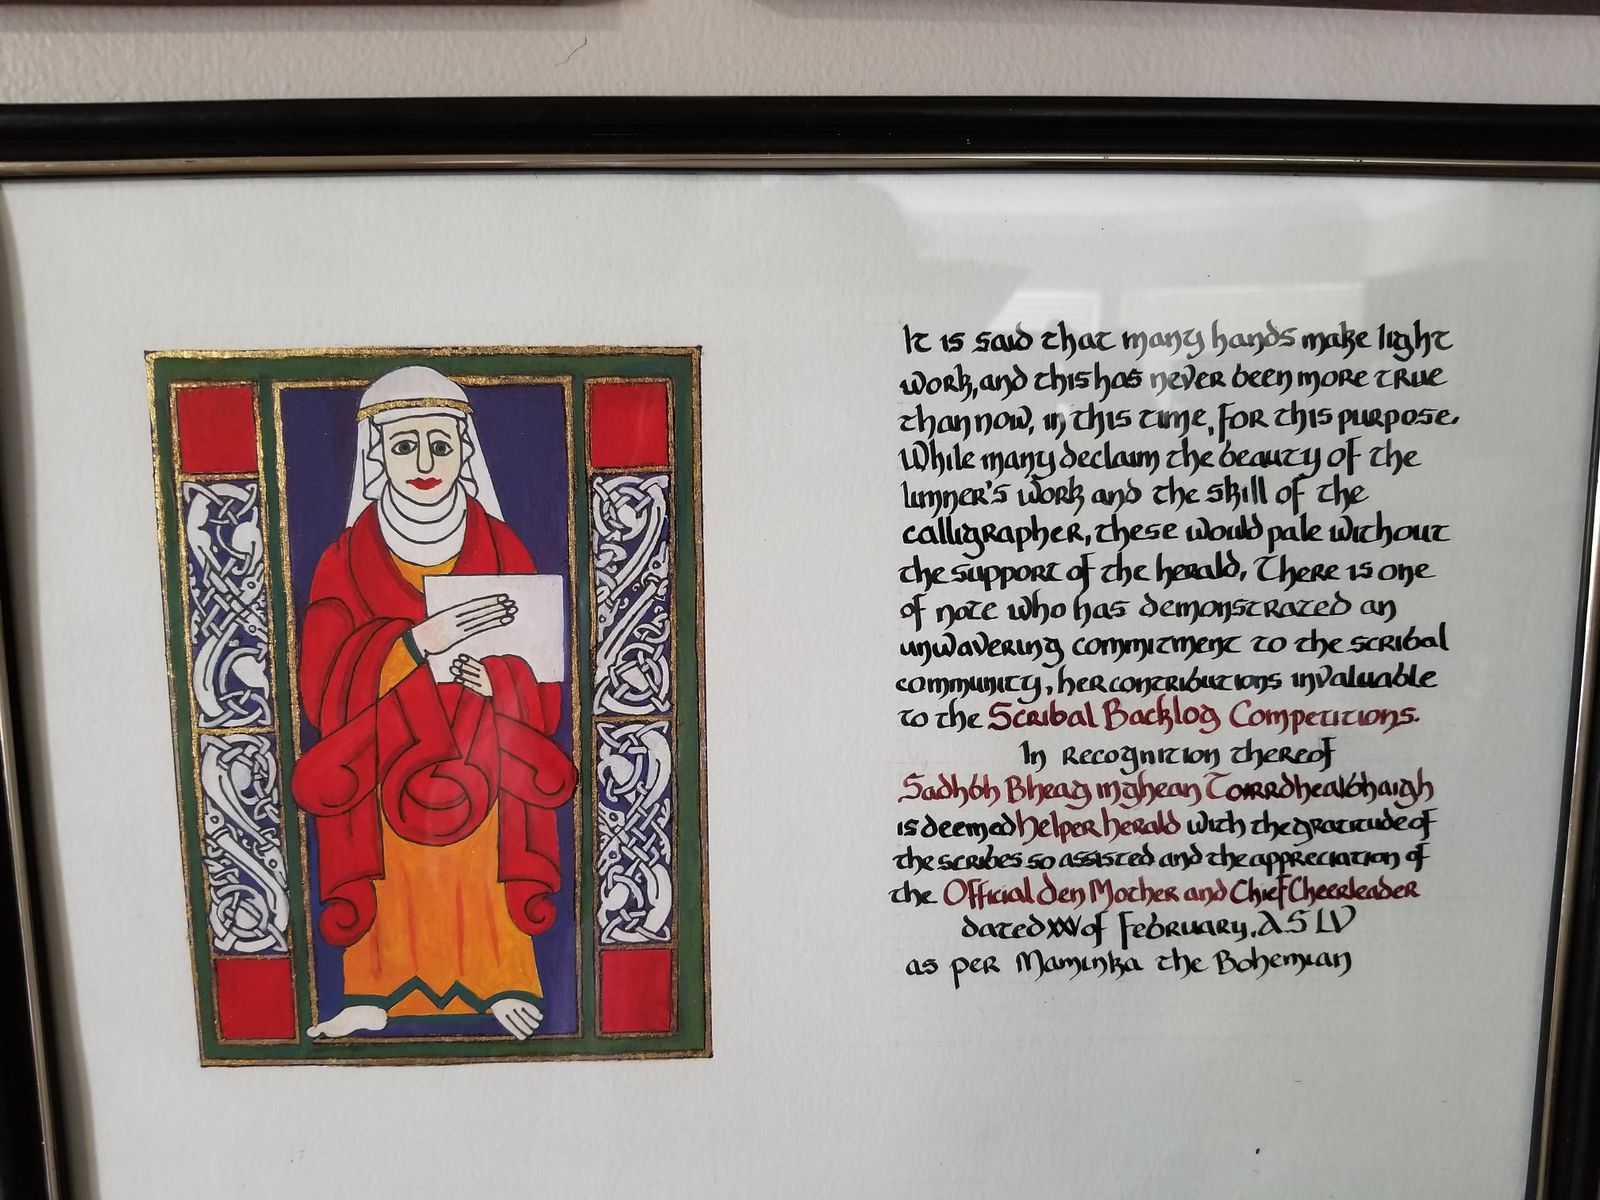 It is said that many hands make light
work, and this has never been more true
than now, in this time, for this purpose.
While many declaim the beauty of the
limner's work and the skill of the
calligrapher, these would pale without
the support of the herald. There is one
of note who has demonstrated an
unwavering commitment to the scribal
community, her contributions invaluable
to the Scribal Backlog Competitions.
In recognition thereof
Sadhbh Bheag inghean Toirrdhealbhaigh
is deemed helper herald with the gratitude of
the scribes so assisted and the appreciation of
the Official Den Mother and Chief Cheerleader
dated XXV of February, AS LV
as per Maminka the Bohemian